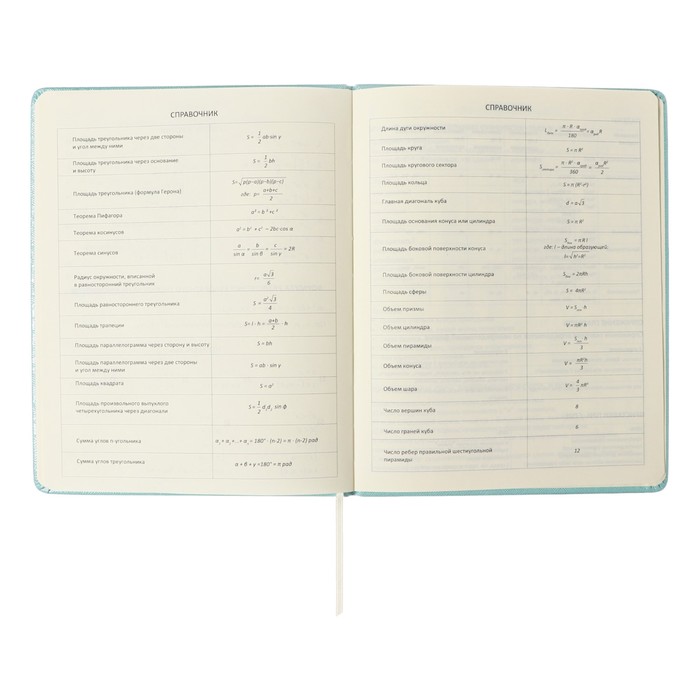 СПРАВОЧНИК
Площадь треугольника через две стороны
и угол между ними
S = 1/2 ab·sin γ
Площадь треугольника через основание
и высоту
S = 1/2 bh
Площадь треугольника (формула Герона)
S=√p(p-a)(p-b)(p-c)
где: p= a+b+c/2
Теорема Пифагора
a² = b² + c²
Теорема косинусов
a² = b² + c² - 2bc·cos α
Теорема синусов
a/sin α = b/sin β = c/sin γ = 2R
Радиус окружности, вписанной
в равносторонний треугольник
r= a√3/6
Площадь равностороннего треугольника
S = a²√3/4
Площадь трапеции
S= l · h = a+b/2 · h
Площадь параллелограмма через сторону и высоту
S = bh
Площадь параллелограмма через две стороны
и угол между ними
S = ab · sin γ
Площадь квадрата
S = a²
Площадь произвольного выпуклого
четырехугольника через диагонали
S = 1/2 d₁d₂ sin ф
Сумма углов n-угольника
α₁ + α₂ +...+ αₙ = 180° · (n-2) = π · (n-2) рад
Сумма углов треугольника
α + β + γ =180° = π рад
СПРАВОЧНИК
Длина дуги окружности
Площадь круга
S = π R²
Площадь кругового сектора
Площадь кольца
S = π (R²-r²)
Главная диагональ куба
d = a√3
Площадь основания конуса или цилиндра
S = π R²
Площадь боковой поверхности конуса
где: l – длина образующей;
Площадь боковой поверхности цилиндра
Площадь сферы
S = 4πR²
Объем призмы
Объем цилиндра
V = πR² h
Объем пирамиды
Объем конуса
V = πR²h/3
Объем шара
V = 4/3 πR³
Число вершин куба
8
Число граней куба
6
Число ребер правильной шестиугольной
пирамиды
12